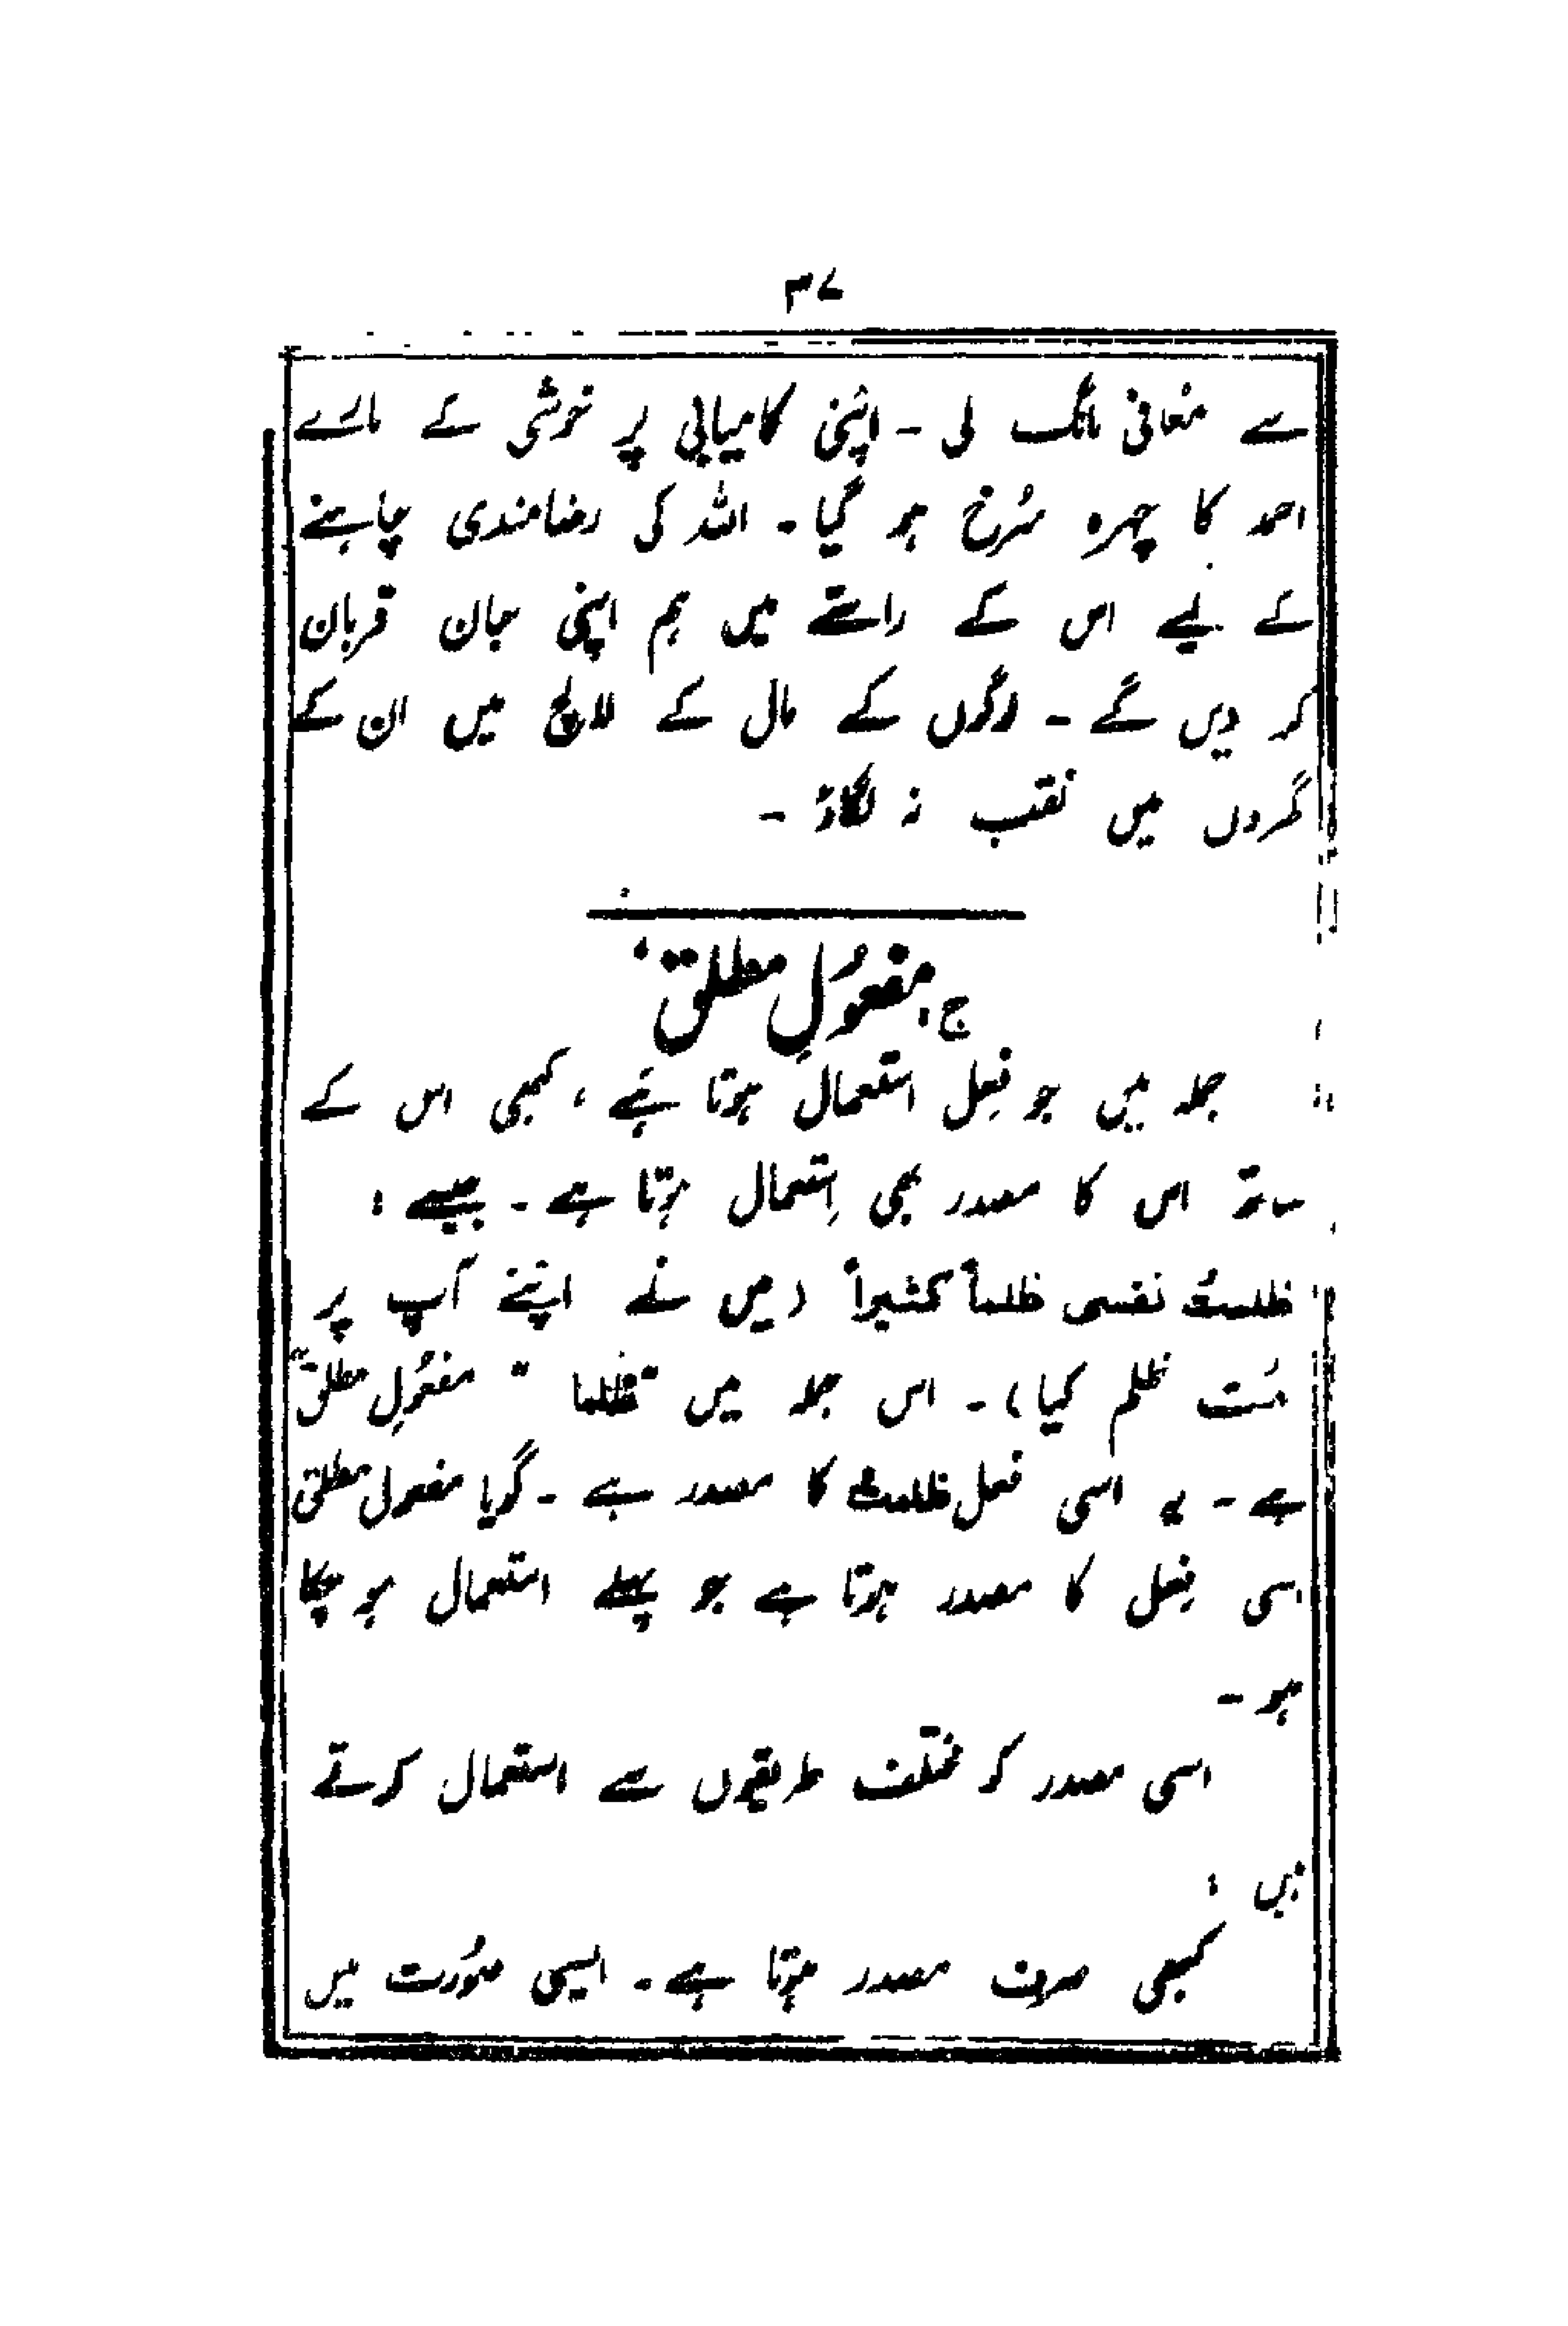 ۳۷
سے معافی مانگ لی ۔ اپنی کامیابی پر خوشی کے مارے
احمد کا چہرہ سُرخ ہو گیا ۔ اللہ کی رضامندی چاہنے
کے لیے اس کے راستے میں ہم اپنی جان قربان
کر دیں گے ۔ لوگوں کے مال کے لالچ میں ان کے
گھروں میں نقب نہ لگاؤ ۔
ج: مفعُولِ مطلق
جملہ میں جو فِعل استعمال ہوتا ہے ، کبھی اس کے
ساتھ اس کا مصدر بھی اِستعمال ہوتا ہے ۔ جیسے :
ظلمتُ نفسی ظلماً کثیراً (میں نے اپنے آپ پر
بہت ظلم کیا) ۔ اس جملہ میں "ظلما" مفعُولِ مطلق
ہے ۔ یہ اسی فعل ظلمتُ کا مصدر ہے ۔ گویا مفعول مطلق
اسی فِعل کا مصدر ہوتا ہے جو پہلے استعمال ہو چکا
ہو ۔
اسی مصدر کو مختلف طریقوں سے استعمال کرتے
ہیں :
کبھی صرف مصدر ہوتا ہے ۔ ایسی صُورت میں